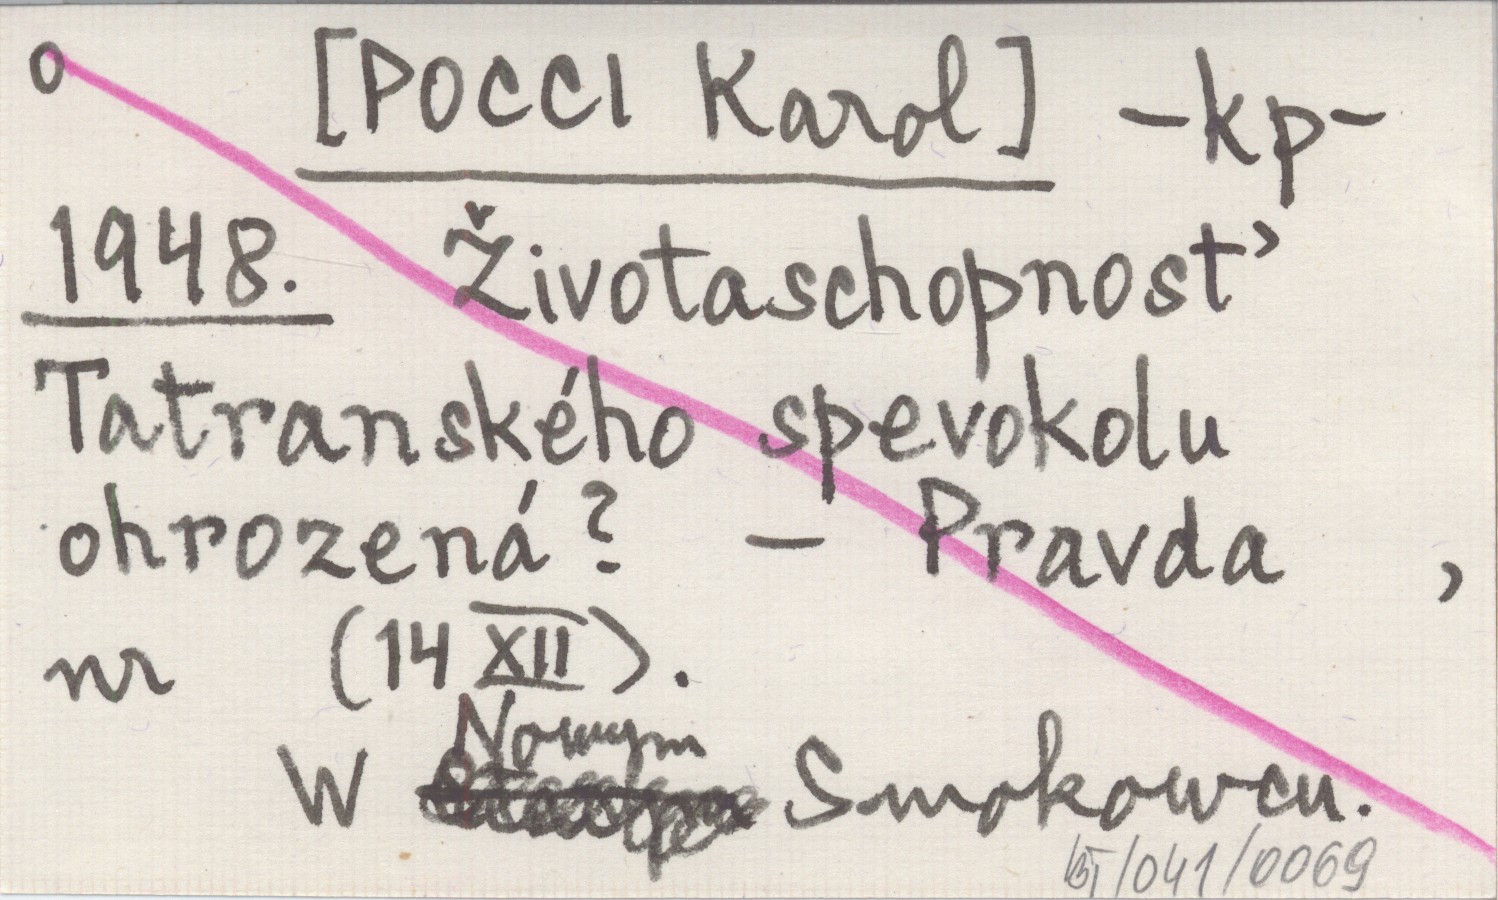 o [POCCI Karol] -kp-
1948. Životaschopnosť
Tatranského spevokolu
ohrozená? — Pravda ,
nr (14 XII).
W Nowym Smokowcu.
/041/0069